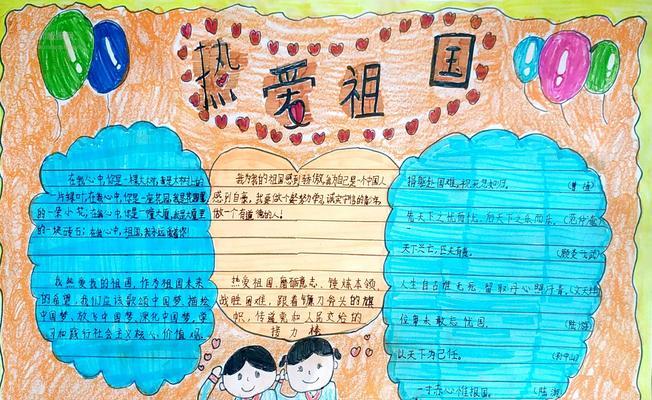 热爱祖国
在我心中,你是一棵大大树,我是大树上的
一片绿叶;在我心中,你是一座花园,我是花园里
的一朵小花;在我心中,你是一幢大厦,我是大厦里
的一块砖石;在我心中,祖国,我永远爱着你!
我热爱我的祖国,作为祖国未来
的希望,我们应该歌颂中国梦,描绘
中国梦,放飞中国梦,深化中国梦,学
习和践行社会主义核心价值观
我为我的祖国感到骄傲,我为自己是一个中国人
感到自豪,我要做个勤劳学习诚实守信的少年,
做一个有道德的人!
热爱祖国,磨砺意志,锤炼本领,
战胜困难,跟着镰刀斧头的旗
帜,传递党和人民交给的
接力棒
捐躯赴国难,视死忽如归。(曹植)
先天下之忧而忧,后天下之乐而乐。(范仲淹)
天下兴亡,匹夫有责。(顾炎武)
人生自古谁无死,留取丹心照汗青。(文天祥)
位卑未敢忘忧国。(陆游)
以天下为己任。(孙中山)
一寸赤心惟报国。(陆游)